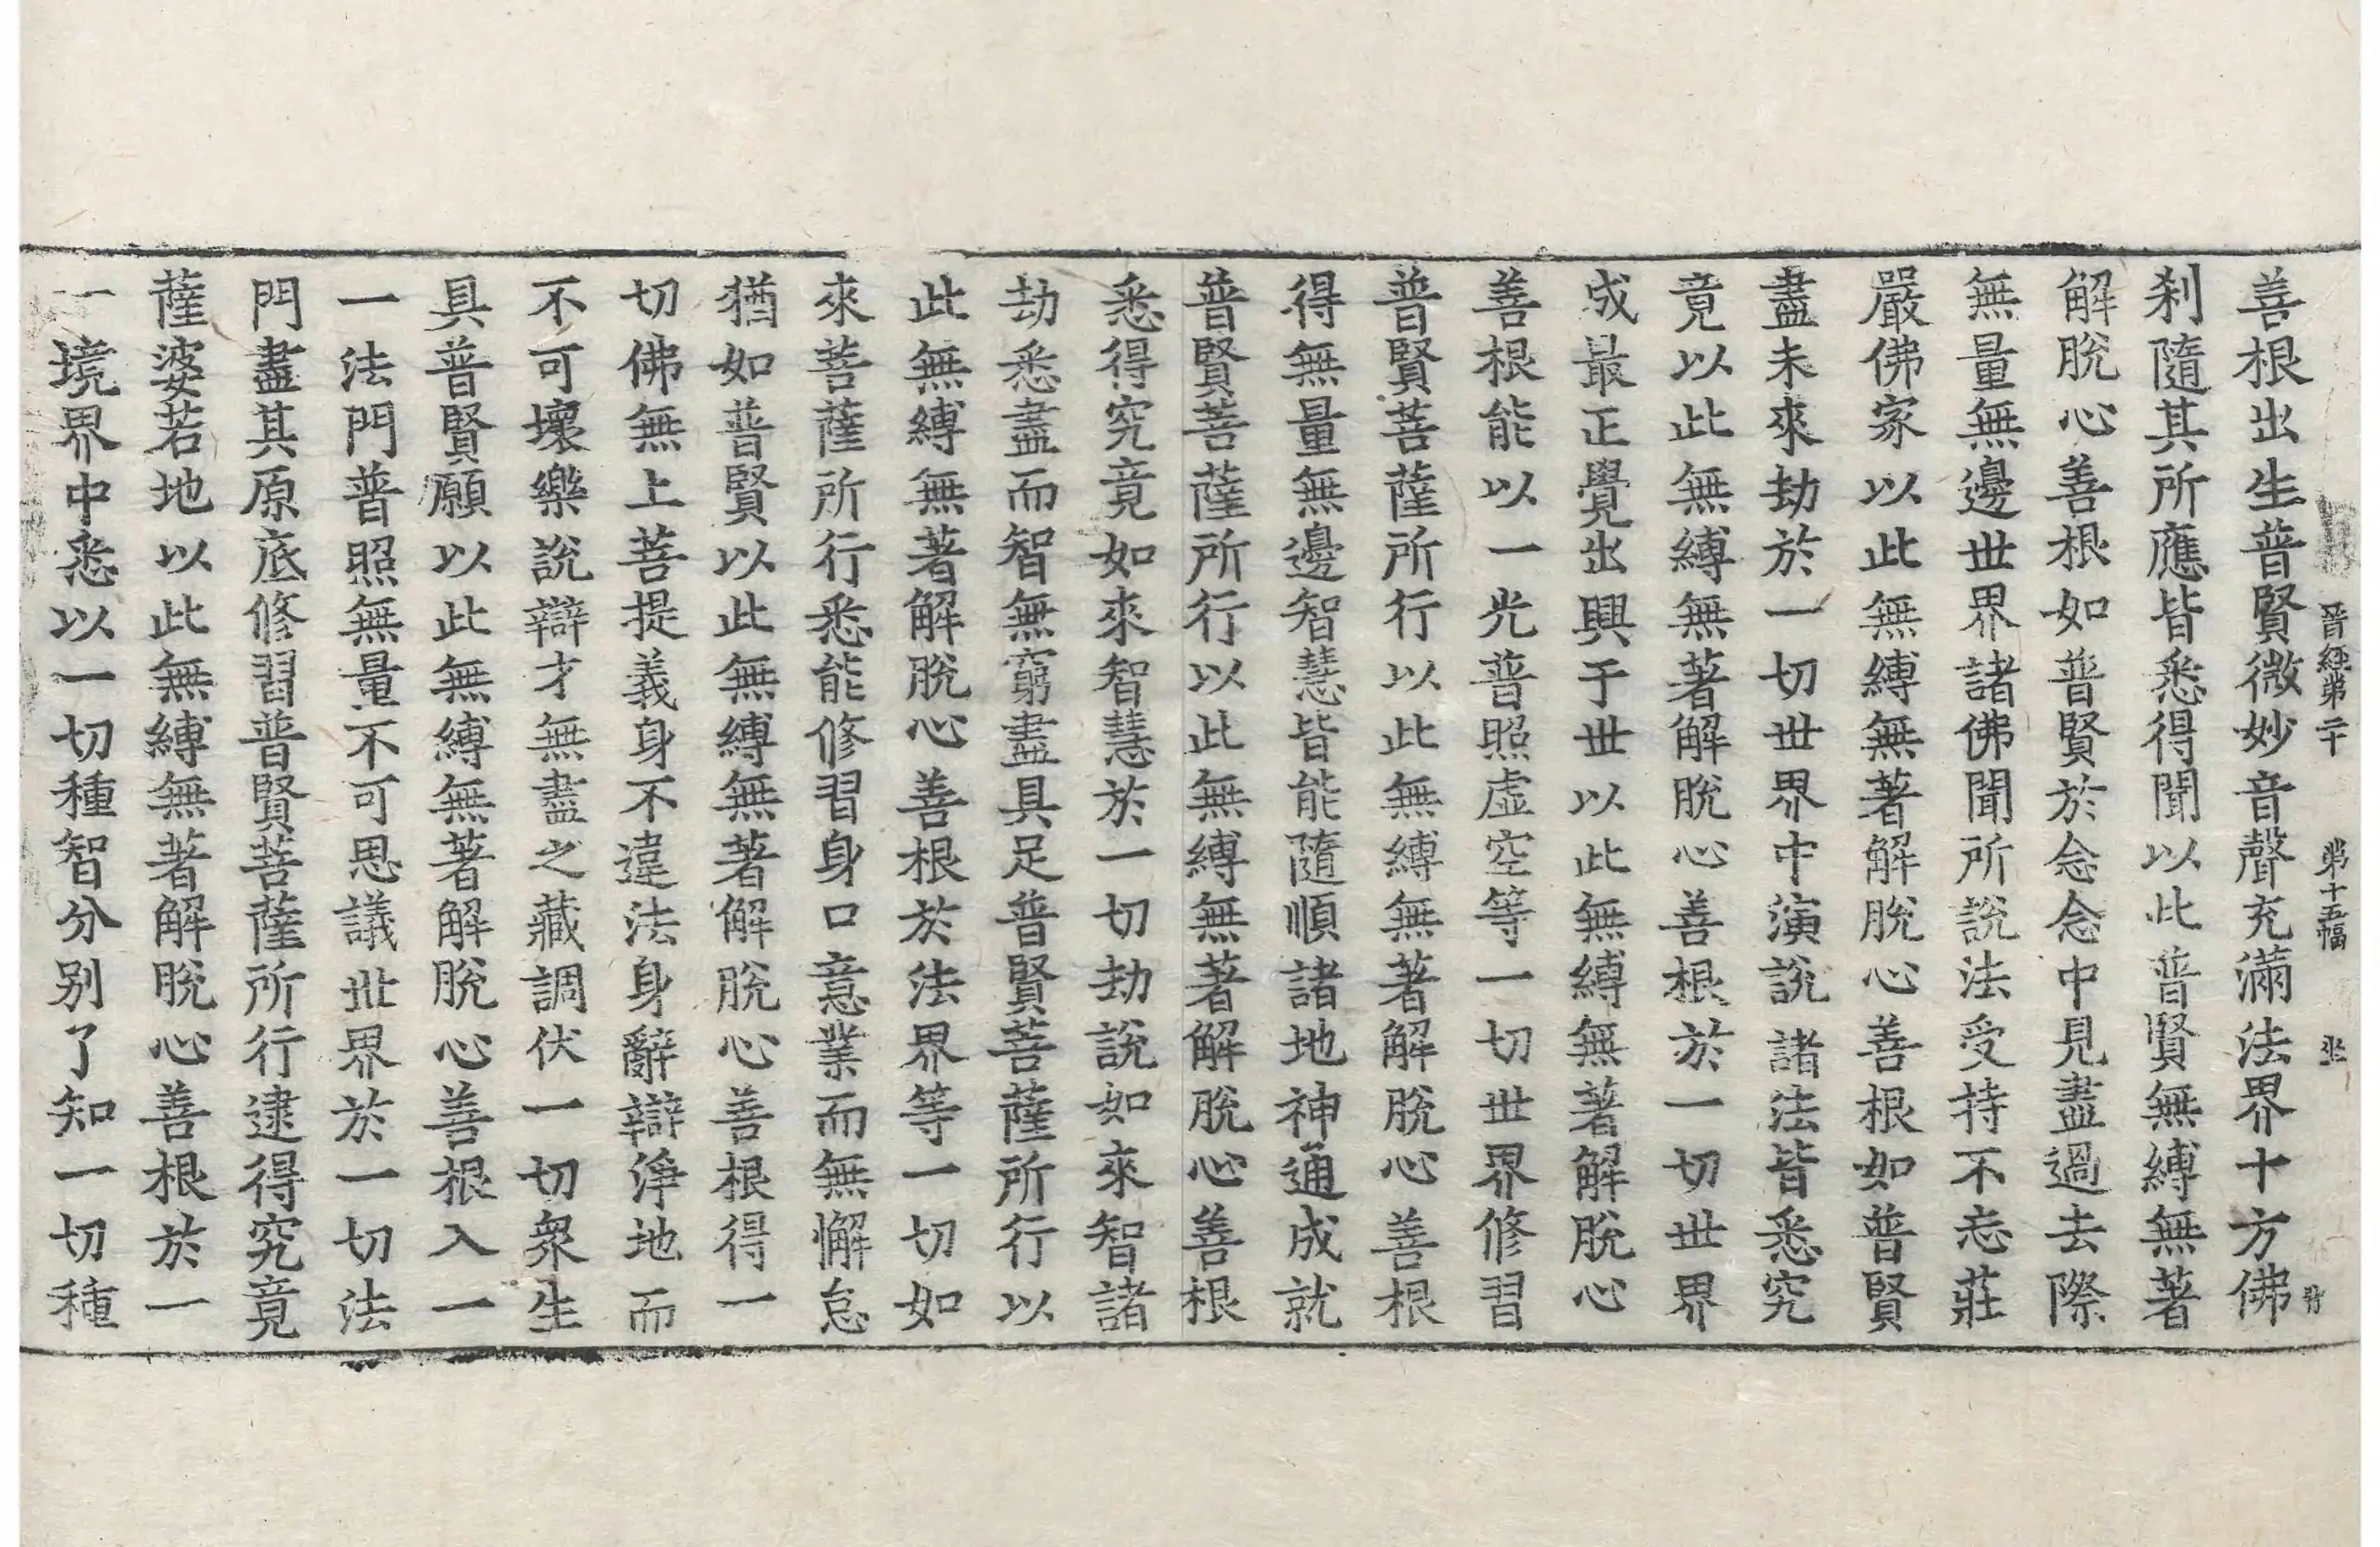 晉經第二十 第十五幅 坐
善根出生普賢微妙音聲充滿法界十方佛
刹隨其所應皆悉得聞以此普賢無縛無著
解脫心善根如普賢於念念中見盡過去際
無量無邊世界諸佛聞所說法受持不忘莊
嚴佛家以此無縛無著解脫心善根如普賢
盡未來劫於一切世界中演說諸法皆悉究
竟以此無縛無著解脫心善根於一切世界
成最正覺出興于世以此無縛無著解脫心
善根能以一光普照虛空等一切世界修習
普賢菩薩所行以此無縛無著解脫心善根
得無量無邊智慧皆能隨順諸地神通成就
普賢菩薩所行以此無縛無著解脫心善根
悉得究竟如來智慧於一切劫說如來智諸
劫悉盡而智無窮盡具足普賢菩薩所行以
此無縛無著解脫心善根於法界等一切如
來菩薩所行悉能修習身口意業而無懈怠
猶如普賢以此無縛無著解脫心善根得一
切佛無上菩提義身不違法身辭辯淨地而
不可壞樂說辯才無盡之藏調伏一切衆生
具普賢願以此無縛無著解脫心善根入一
一法門普照無量不可思議世界於一切法
門盡其原底修習普賢菩薩所行逮得究竟
薩婆若地以此無縛無著解脫心善根於一
一境界中悉以一切種智分别了知一切種